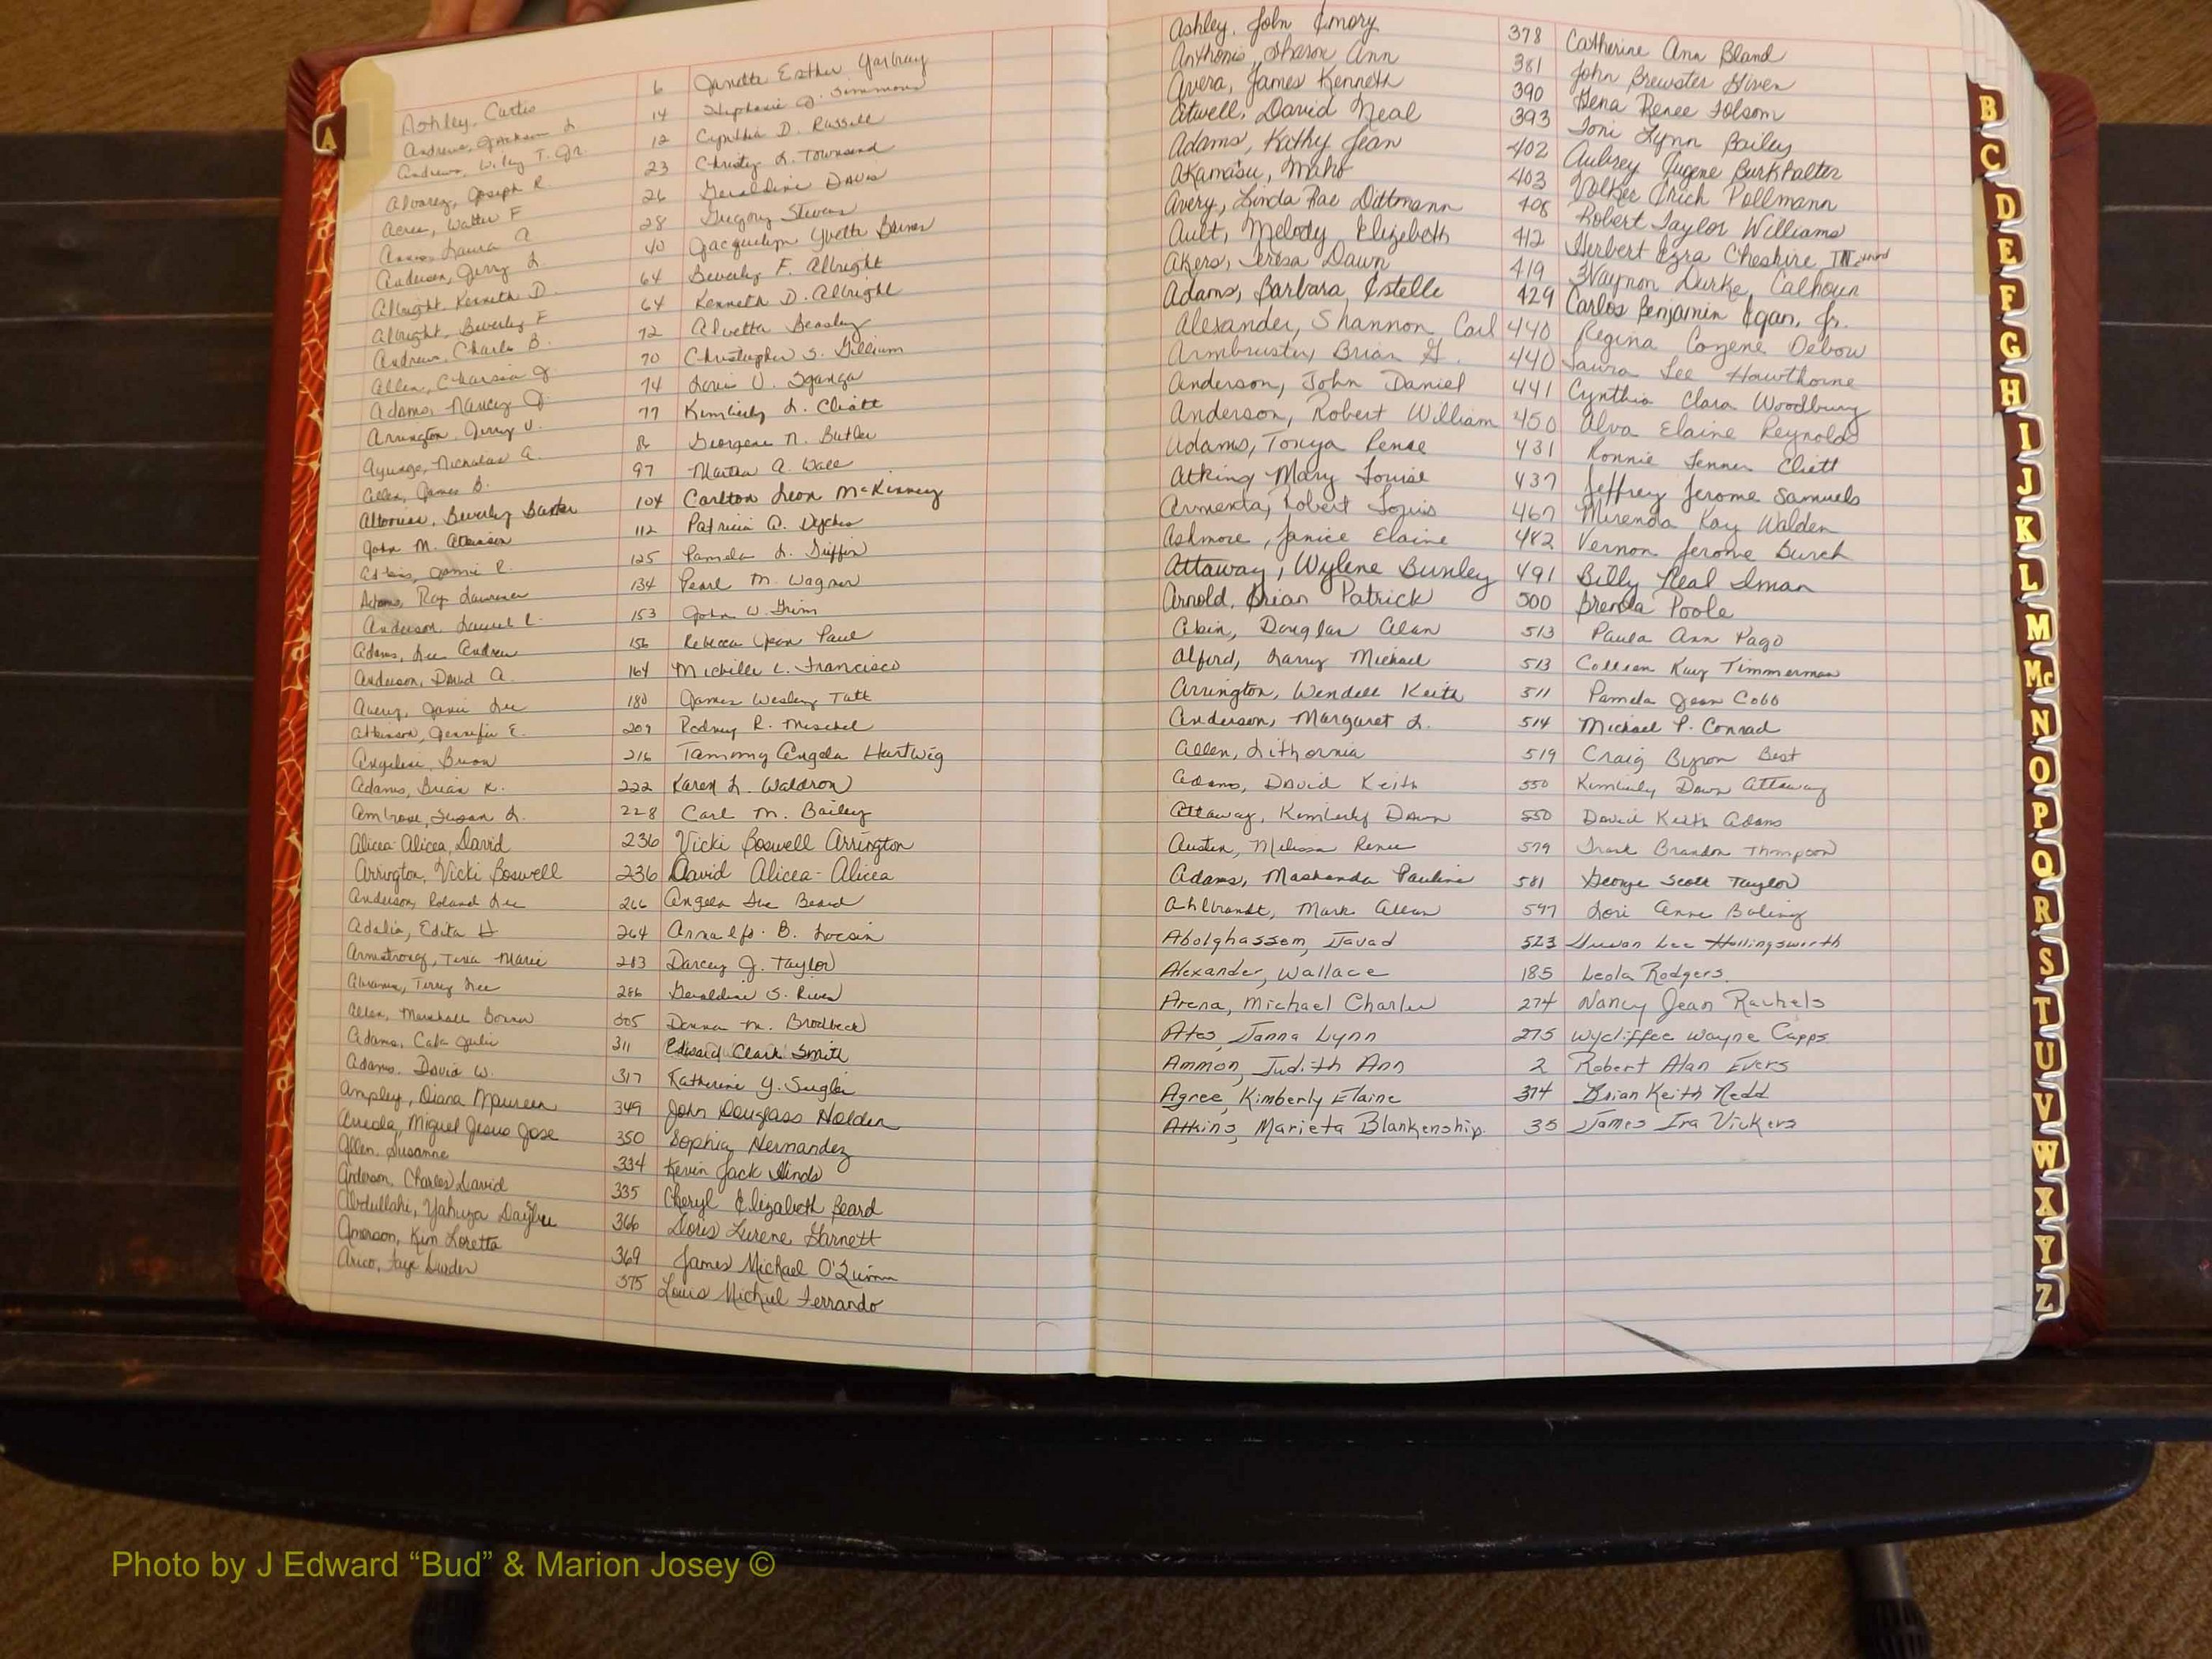 A
Ashley, Curtis 6 Janette Esther Yarbray
Andrews, Jackson L. 14 Stephanie J. Simmons
Andrews, Wiley T. Jr. 12 Cynthia D. Russell
Alvarez, Joseph R. 23 Christy L. Townsend
Acree, Walter F. 26 Geraldine Davis
Laura A 28 Gregory Stevens
Anderson, Jerry L. 40 Jacquelyn Yvette Barnes
Albright, Kenneth D. 64 Beverly F. Albright
Albright, Beverly F. 64 Kenneth D. Albright
Andrews, Charles B. 72 Alvetta Beasley
Allen, J. 70 Christopher S. Gilliam
Adams, Nancy J. 74 Louis V. Sganga
Arrington, Jerry V. 77 Kimberly L. Cliatt
Nicholas A. Georgene N. Butler
Allen, James B. 97 Martha A. Wall
Beverly Baxter 104 Carlton Leon McKinney
John M. Atkinson 112 Patricia A.
Jamie R. 125 Pamela L. Griffin
Adams, Ray Lawrence 134 Pearl M. Wagner
Anderson, Laurel L. 153 John W. Grim
Adams, Lee Andrew 156 Rebecca Jean Paul
Anderson, David A. 164 Michelle L. Francisco
Avery, Janie Lee 180 James Wesley Tatt
Atkinson, Jennifer E. 209 Rodney R. Mischel
Brian 216 Tammy Angela Hartwig
Adams, Brian K. 222 Karen L. Waldron
Ambrose, Susan L. 228 Carl M. Bailey
Alicea-Alicea, David 236 Vicki Boswell Arrington
Arrington, Vicki Boswell 236 David Alicea-Alicea
Anderson, Roland Lee 266 Angela Sue Beard
Adalia, Edita H 264 B. Locsin
Armstrong, Tina Marie 283 Darcey J. Taylor
Abrams, Terry Lee 286 Geraldine S.
Allen, Marshall 305 Donna M. Brodbeck
Adams, Julie 311 Edward Clark Smith
Adams, David W. 317 Katherine Y. Seigler
Ampley, Diana Maureen 349 John Douglass Holden
Arreola, Miguel Jesus Jose 350 Sophia Hernandez
Allen, Susanne 334 Kevin Jack Hinds
Anderson, Charles David 335 Cheryl Elizabeth Beard
Abdullahi, Yahuza 366 Doris Lurene Garnett
Amerson, Kim Loretta 369 James Michael O'Quinn
Arico, Faye Durden 375 Louis Michael Ferrando
Ashley, John Emory 378 Catherine Ann Bland
Anthonis, Sharon Ann 381 John Brewster Given
Avera, James Kenneth 390 Gena Renee Folsom
Atwell, David Neal 393 Toni Lynn Bailey
Adams, Kathy Jean 402 Aubrey Eugene Burkhalter
Akamasu, Maho 403 Volker Erich Pollmann
Avery, Linda Rae Dittmann 408 Robert Taylor Williams
Ault, Melody Elizebeth 412 Herbert Ezra Cheshire III
Akers, Teresa Dawn 419 Waynon Durke Calhoun
Adams, Barbara Estelle 429 Carlos Benjamin Egan, Jr.
Alexander, Shannon Carl 440 Regina Cozene Debow
Armbruster, Brian G. 440 Laura Lee Hawthorne
Anderson, John Daniel 441 Cynthia Clara Woodbury
Anderson, Robert William 450 Alva Elaine Reynolds
Adams, Tonya Renae 431 Ronnie Fenner Cliett
Atkins Mary Louise 437 Jeffrey Jerome Samuels
Armenta, Robert Louis 467 Mirenda Kay Walden
Ashmore, Janice Elaine 482 Vernon Jerome Burch
Attaway, Wylene Bunley 491 Billy Neal Inman
Arnold, Brian Patrick 500 Brenda Poole
Abin, Douglas Alan 513 Paula Ann Pago
Alford, Larry Michael 513 Colleen Kay Timmerman
Arrington, Wendell Keith 511 Pamela Jean Cobb
Anderson, Margaret L. 514 Michael P. Conrad
Allen, Lithornia 519 Craig Byron Best
Adams, David Keith 550 Kimberly Dawn Attaway
Attaway, Kimberly Dawn 550 David Keith Adams
Austin, Melissa Renee 579 Brandon Thompson
Adams, Mashanda Pauline 581 George Scott Taylor
Ahlbrandt, Mark Allan 597 Lori Anne Boling
Abolghassem, Javad 523 Susan Lee Hollingsworth
Alexander, Wallace 185 Leola Rodgers
Arena, Michael Charles 274 Nancy Jean Rachels
Ates, Janna Lynn 275 Wycliffee Wayne Capps
Ammon, Judith Ann 2 Robert Alan Evers
Agree, Kimberly Elaine 374 Brian Keith Redd
Atkins, Marieta Blankenship 35 James Ira Vickers
B
C
D
E
F
G
H
I
J
K
L
M
Mc
N
O
P
Q
R
S
T
U
V
W
X
Y
Z
Photo by J Edward “Bud” & Marion Josey ©